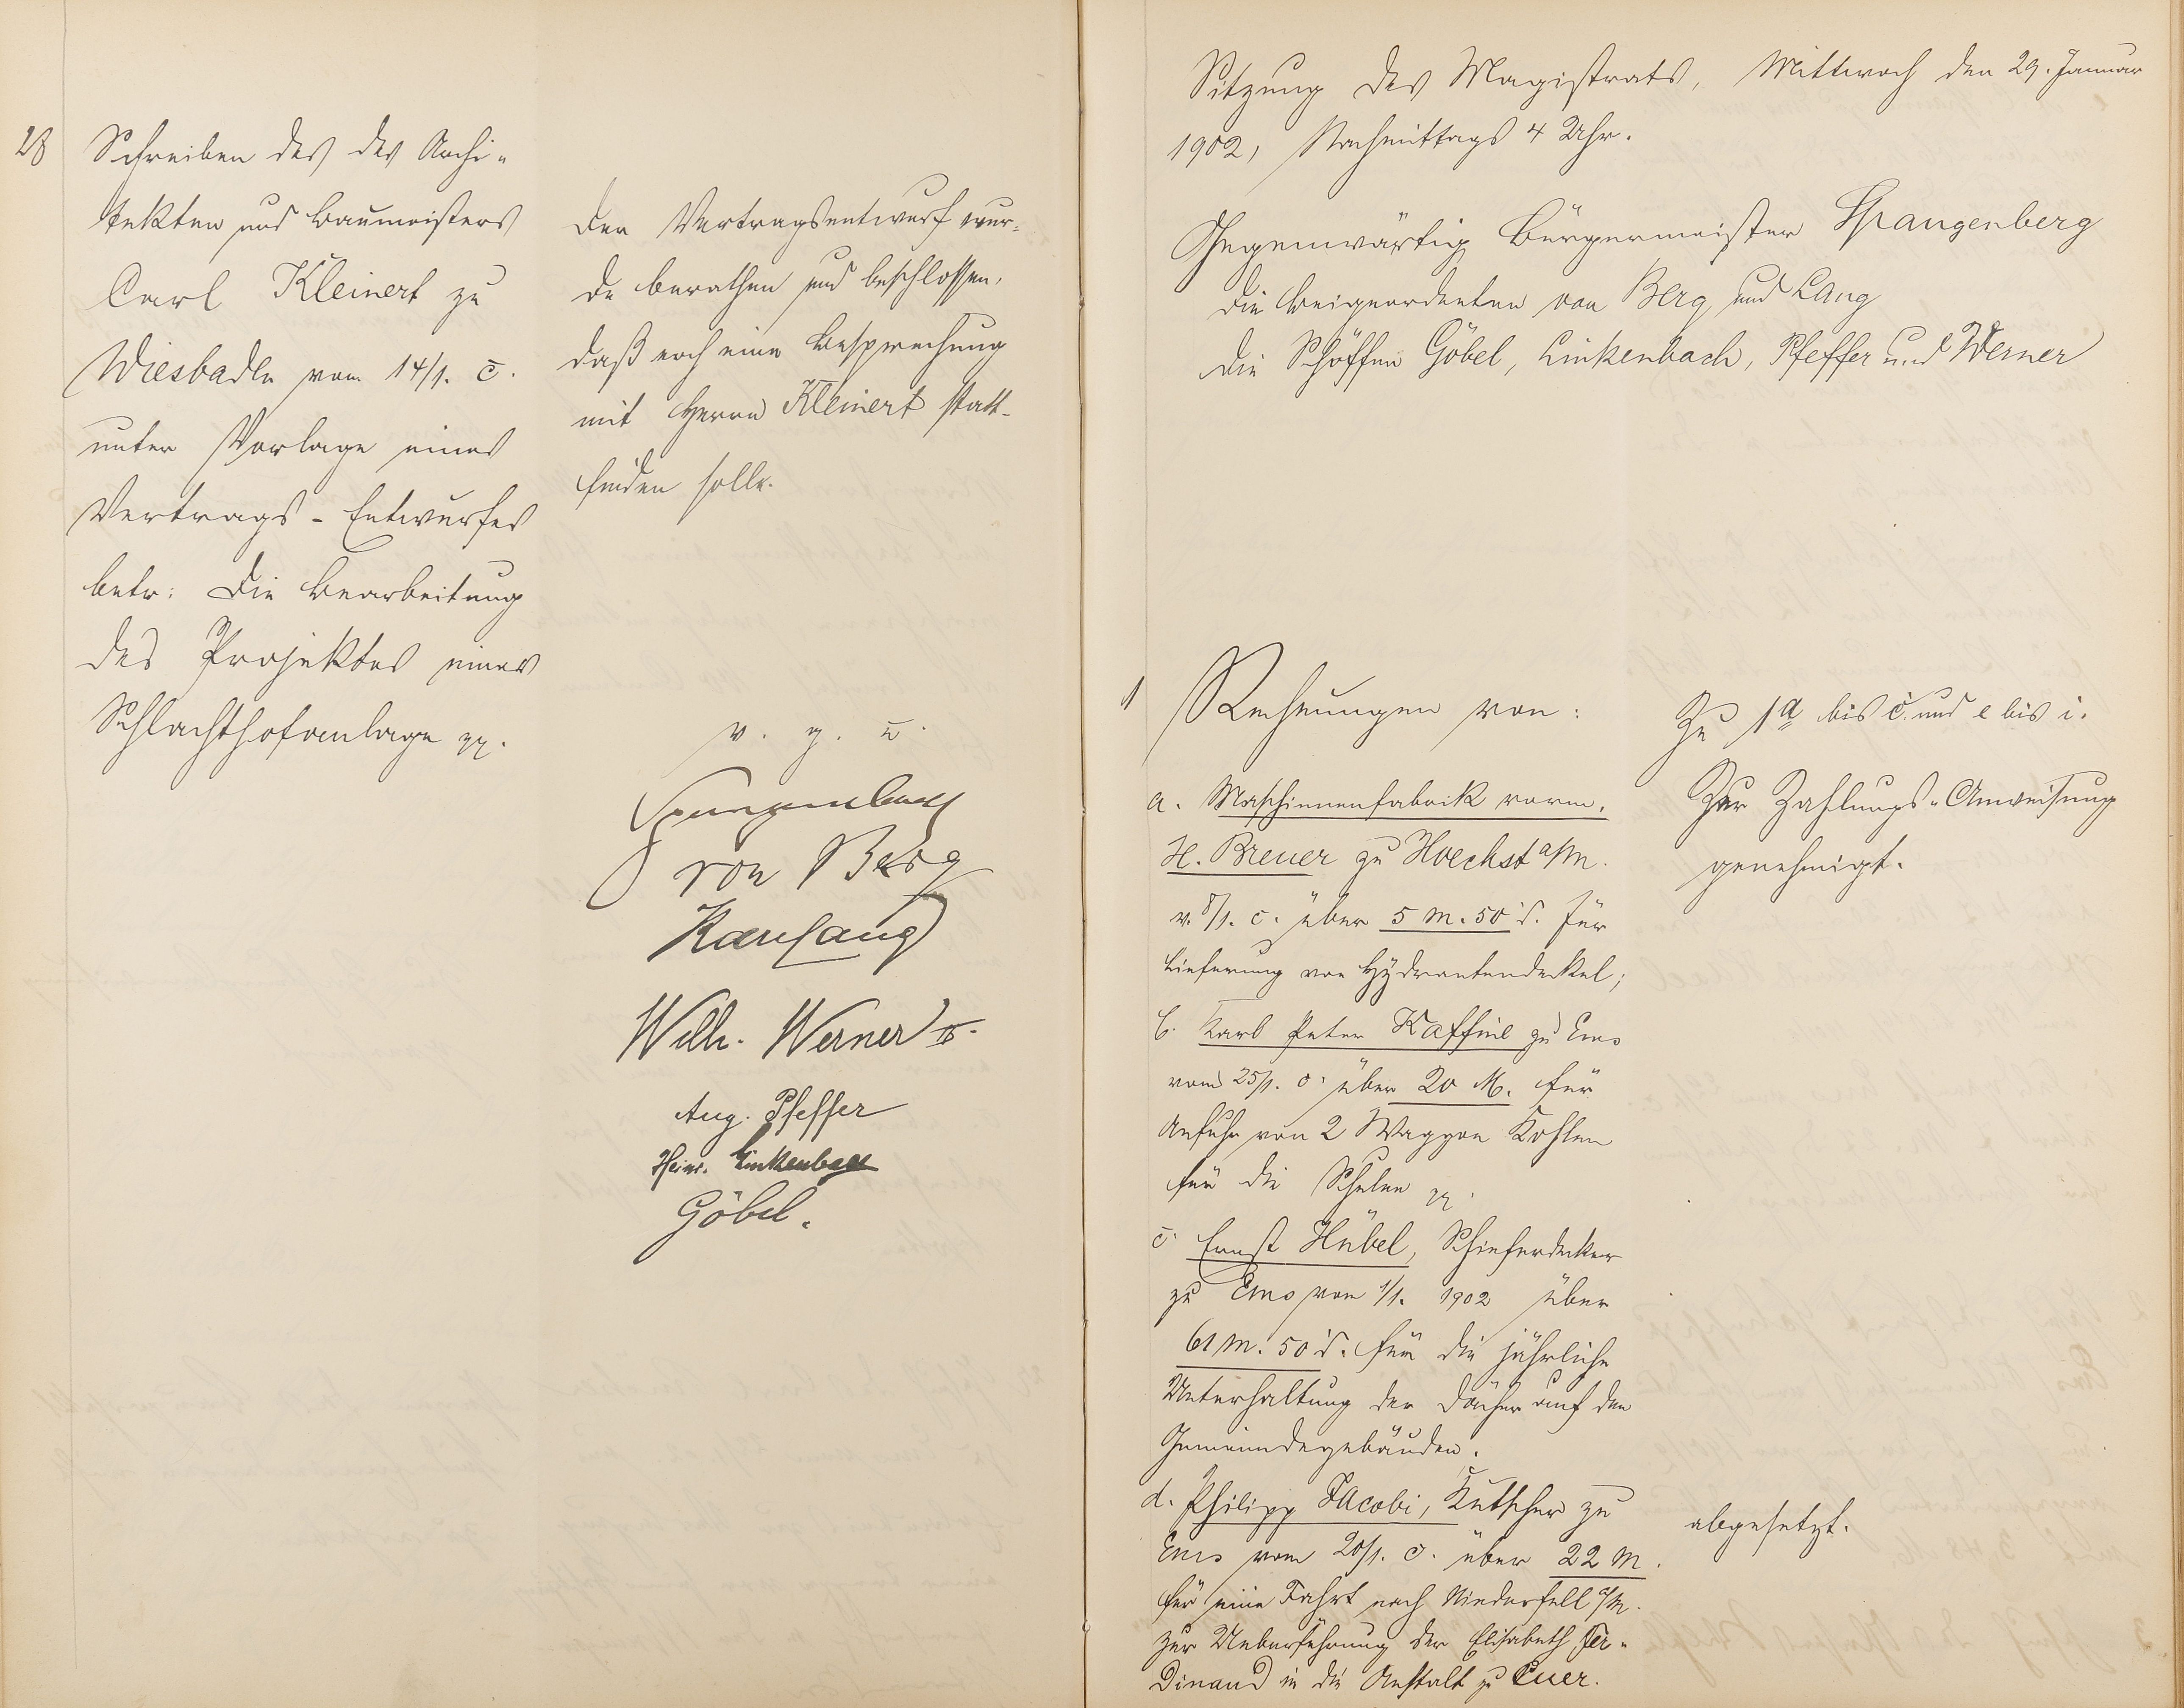 28
Schreiben des des Archi-
tekten und Baumeisters
Carl Kleinert zu
Wiesbaden vom 14/1. c.
unter Vorlage eines
Vertrags-Entwurfes
betr: die Bearbeitung
des Projektes einer
Schlachthofanlage pp.
Der Vertragsentwurf wur-
de berathen und beschlossen,
daß noch eine Besprechung
mit Herrn Kleinert statt-
finden solle.
v. g. u.
Spangenberg
von Berg
Karl Lang
Wilh. Werner II.
Aug. Pfeffer
Heinr. Linkenbach
Göbel.
Sitzung des Magistrats, Mittwoch den 29. Januar
1902, Nachmittags 4 Uhr.
Gegenwärtig Bürgermeister Spangenberg
die Beigeordneten von Berg und Lang
die Schöffen Göbel, Linkenbach, Pfeffer und Werner
1 Rechnungen von:
a. Maschinenfabrik vorm.
H. Breuer zu Hoechst a/M.
v. 8/1. c. über 5 M. 50 d. für
Lieferung von Hydrantendeckel;
b. Karl Peter Kaffine zu Ems
vom 25/1. c. über 20 M. für
Anfuhr von 2 Waggon Kohlen
für die Schulen pp.
c. Ernst Hübel, Schieferdecker
zu Ems vom 1/1. 1902 über
61 M. 50 d. für die jährliche
Unterhaltung der Dächer auf den
Gemeindegebäuden.
d. Philipp Jacobi, Kutscher zu
Ems vom 20/1. c. über 22 M.
für eine Fahrt nach Niederfell a/M.
zur Ueberführung der Elisabeth Fer-
dinand in die Anstalt zu Cuer.
Zu 1a bis c. und e bis i.
Zur Zahlungs-Anweisung
genehmigt.
abgesetzt.